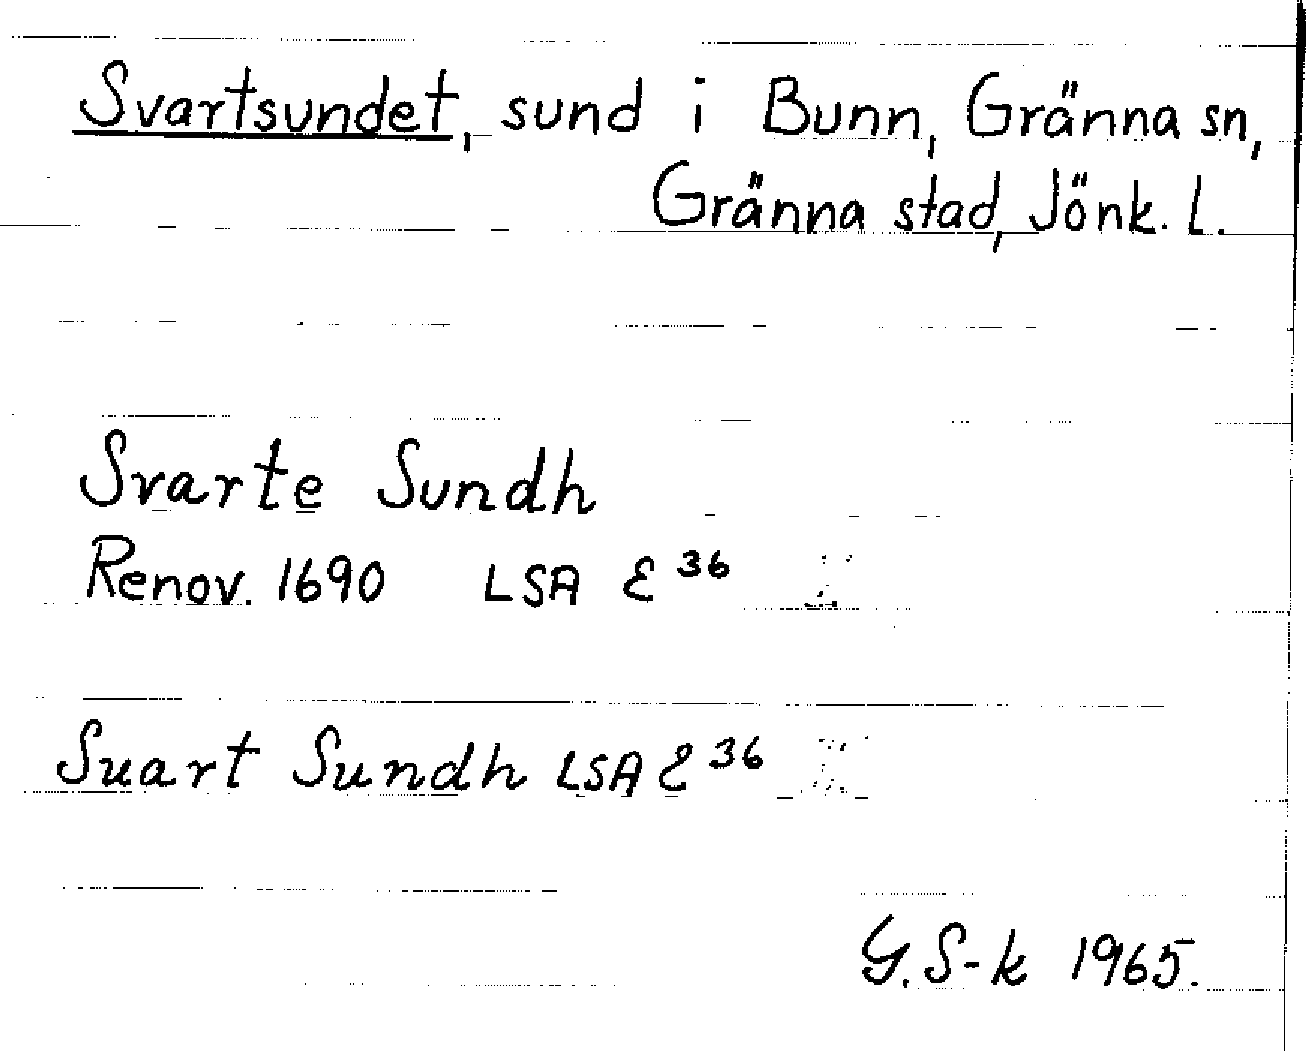 Svartsundet, sund i Bunn, Gränna sn,
Gränna stad, Jönk. L.
Svarte Sundh
Renov. 1690 LSA E 36
Suart Sundh LSA E 36
G. S-k 1965.